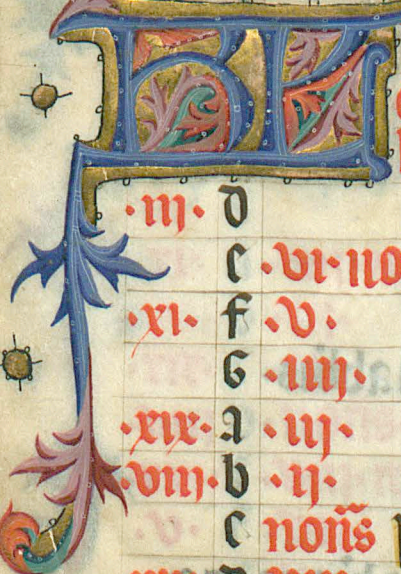 KL
·iii· d
e ·vi· no
·xi· f ·v·
G ·iiii·
·xix· a ·iii·
·viii· b ·ii·
c noñs